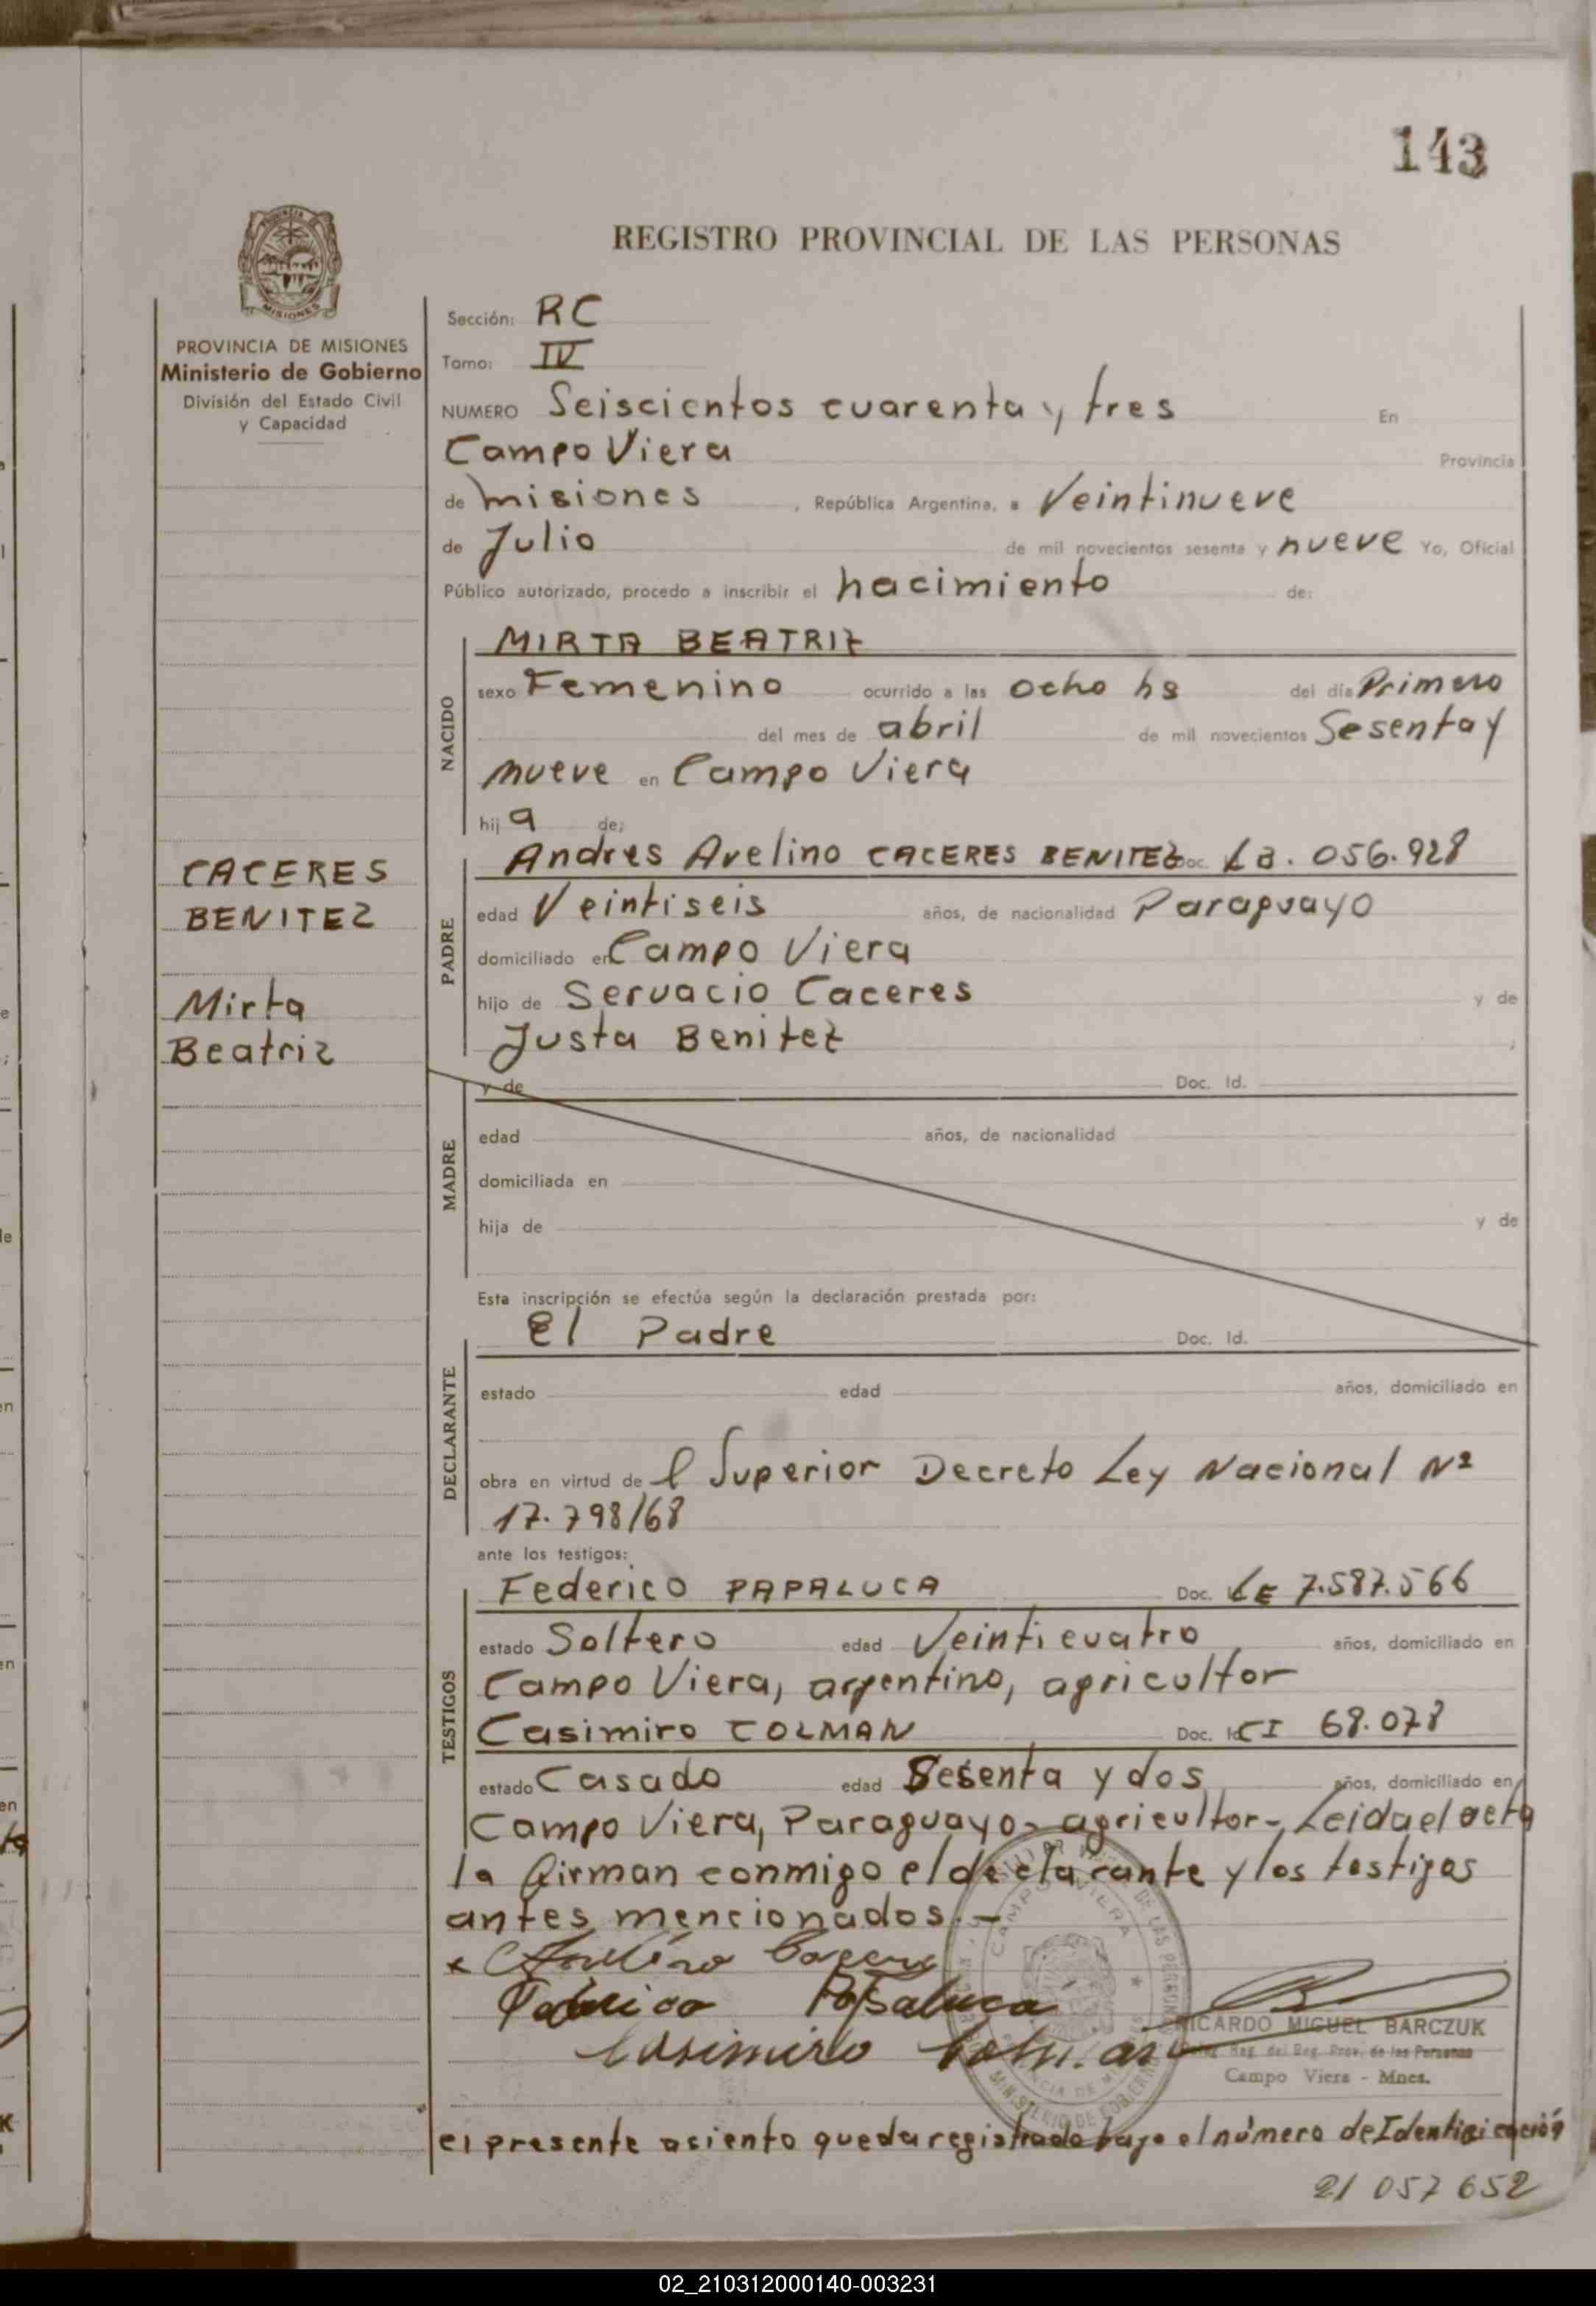 143
REGISTRO PROVINCIAL DE LAS PERSONAS
PROVINCIA DE MISIONES
Ministerio de Gobierno
División del Estado Civil
y Capacidad
CACERES
BENITEZ
Mirta
Beatriz
Sección: RC
Tomo: IV
NUMERO Seiscientos cuarenta y tres En
Campo Viera Provincia
de misiones, República Argentina, a Veintinueve
de Julio de mil novecientos sesenta y nueve Yo, Oficial
Público autorizado, procedo a inscribir el nacimiento de:
NACIDO
MIRTA BEATRIZ
sexo Femenino ocurrido a las ocho hs del día Primero
del mes de abril de mil novecientos Sesenta y
nueve en Campo Viera
hija de:
PADRE
Andres Avelino CACERES BENITEZ Doc. 056.928
edad Veintiseis años, de nacionalidad Paraguayo
domiciliado en Campo Viera
hijo de Servacio Caceres y de
Justa Benitez
MADRE
y de Doc. Id.
edad años, de nacionalidad
domiciliada en
hija de y de
Esta inscripción se efectúa según la declaración prestada por:
DECLARANTE
El Padre Doc. Id.
estado edad años, domiciliado en
obra en virtud del Superior Decreto Ley Nacional Nº
17.798/68
ante los testigos:
TESTIGOS
Federico PAPALUCA Doc. LE 7.587.566
estado Soltero edad Veinticuatro años, domiciliado en
Campo Viera, argentino, agricultor
Casimiro COLMAN Doc. Id CI 68.078
estado Casado edad Sesenta y dos años, domiciliado en
Campo Viera, Paraguayo, agricultor-, Leida el acta
la firman conmigo el declarante y los testigos
antes mencionados.-
Federico Papaluca
Casimiro Colman
RICARDO MIGUEL BARCZUK
Reg. del Reg. Prov. de las Personas
Campo Viera - Mnes.
el presente asiento queda registrado bajo el número de Identificación
21 057 652
02_210312000140-003231